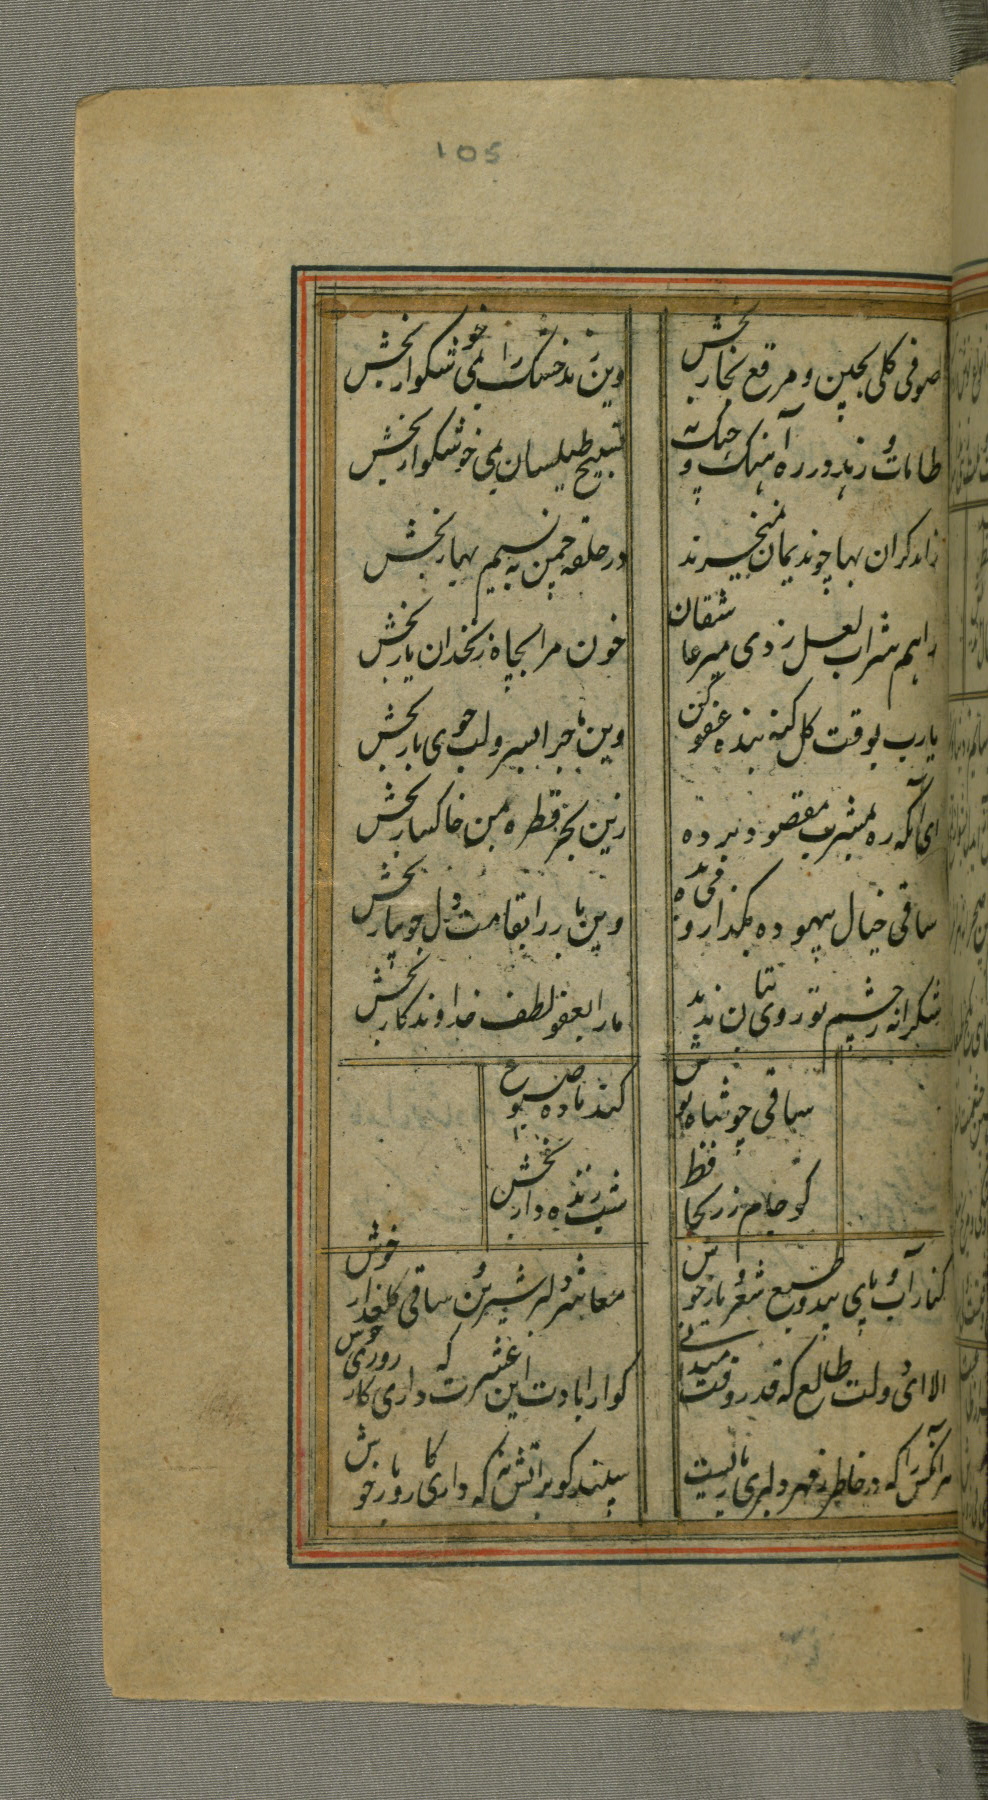 105
صوفی کلی بچین و مرقع بخار بخش
وین زهد خشک را بمی خوشکوار بخش
طامات و زهد در ره آهنک چنک نه
تسبیح طیلسان بمی خوشکوار بخش
در حلقه چمن به نسیم بهار بخش
راهم شراب لعل زد ی میر عاشقان
خون مرا بچاه زنخدان یار بخش
یارب بوقت کل کنه بنده عفو کن
وین ماجرا بسرو لب جوی بار بخش
ای آنکه ره بمشرب مقصود برده
زین بحر قطره بمن خاکسار بخش
ساقی
شکرانه چشم تو روی بتان ندید
مارا بعفو لطف خداوندکار بخش
ساقی چو شاه نوش
کند باده صبوح
کو جام زر بحافظ
شب زنده دار بخش
کنار آب و پای بید و طبع شعر و یار خوش
معاشر دلبر شیرین و ساقی کلعذار خوش
الا ای دولت طالع که قدر وقت میدانی
کوارا بادت این عشرت که داری روزی کار خوش
هر آنکس را که در خاطر ز مهر دلبری باریست
سپندی کو بر آتش نه که داری کار و بار خوش